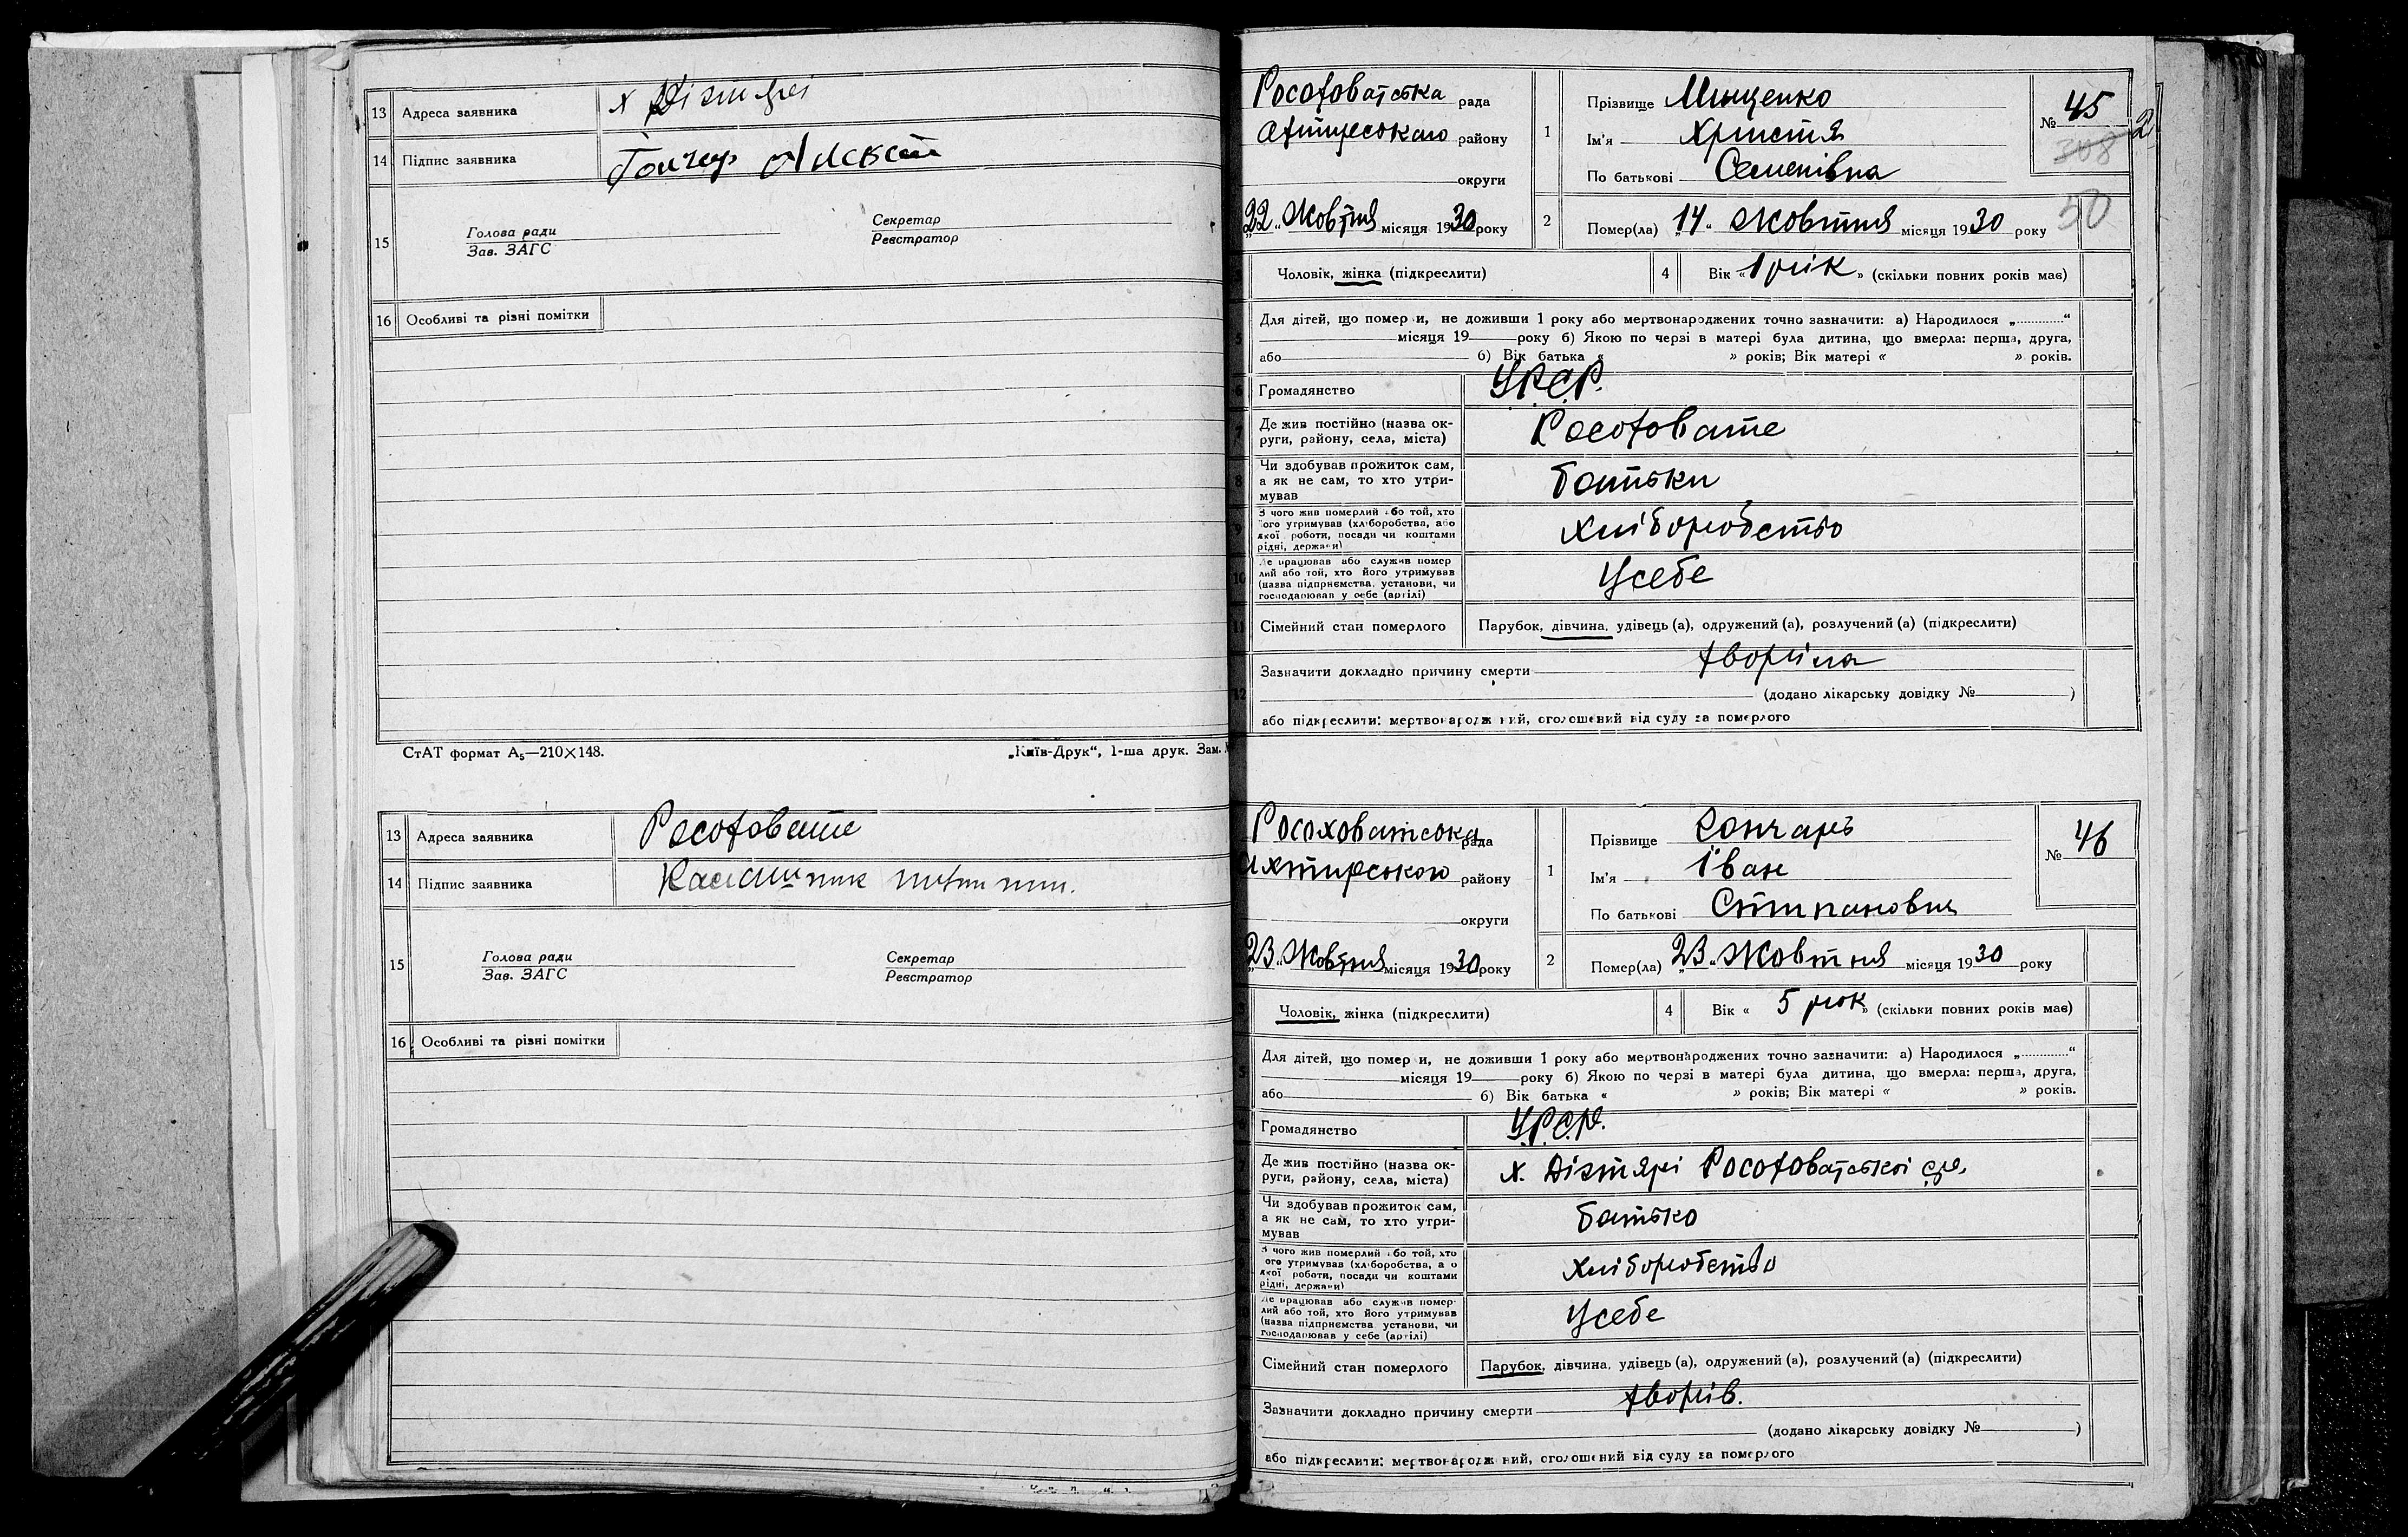 13 Адреса заявника х Дізтярі
14 Підпис заявника Гончар
15 Голова ради Секретар
Зав. ЗАГС Реєстратор
16 Особливі та різні помітки
СтАТ формат А₅—210×148. „Київ-Друк“, 1-ша друк. Зам.
13 Адреса заявника Росоховате
14 Підпис заявника
15 Голова ради Секретар
Зав. ЗАГС Реєстратор
16 Особливі та різні помітки
Росоховатська рада
Охтирського району
округи
„22“ Жовтня місяця 1930 року
1 Прізвище Мищенко
Ім'я Христя
По батькові Семенівна
№ 45
308
2
50
2 Помер(ла) „14“ Жовтня місяця 1930 року
Чоловік, жінка (підкреслити) 4 Вік «1 рік» (скільки повних років має)
5 Для дітей, що помер и, не доживши 1 року або мертвонароджених точно зазначити: а) Народилося „............“
місяця 19 року б) Якою по черзі в матері була дитина, що вмерла: перша, друга,
або б) Вік батька « » років; Вік матері « » років.
6 Громадянство У.Р.С.Р.
7 Де жив постійно (назва ок-
руги, району, села, міста) Росоховате
8 Чи здобував прожиток сам,
а як не сам, то хто утри-
мував батьки
9 З чого жив померлий або той, хто
його утримував (хліборобства, або
якої роботи, посади чи коштами
рідні, держави) хліборобство
10 Де працював або служив помер
лий або той, хто його утримував
(назва підприємства, установи, чи
господарював у себе (артілі) Усебе
11 Сімейний стан померлого Парубок, дівчина, удівець (а), одружений (а), розлучений (а) (підкреслити)
12 Зазначити докладно причину смерти хворіла
(додано лікарську довідку № )
або підкреслити: мертвонародж ний, оголошений від суду за померлого
Росоховатсока рада
Ахтирського району
округи
„23“ Жовтня місяця 1930 року
1 Прізвище Гончарь
Ім'я Іван
По батькові
№ 46
2 Помер(ла) „23“ Жовтня місяця 1930 року
3 Чоловік, жінка (підкреслити) 4 Вік « 5 рок » (скільки повних років має)
5 Для дітей, що помер и, не доживши 1 року або мертвонароджених точно зазначити: а) Народилося „............“
місяця 19 року б) Якою по черзі в матері була дитина, що вмерла: перша, друга,
або б) Вік батька « » років; Вік матері « » років.
Громадянство У.Р.С.Р.
Де жив постійно (назва ок-
руги, району, села, міста) х. Дізтярі Росоховатської с/р.
Чи здобував прожиток сам,
а як не сам, то хто утри-
мував батько
З чого жив померлий або той, хто
ого утримував (хліборобства, а о
якої роботи, посади чи коштами
рідні, держави) хліборобство
Де працював або служив помер-
лий або той, хто його утримував
(назва підприємства, установи, чи
господарював у себе (артілі) Усебе
Сімейний стан померлого Парубок, дівчина, удівець (а), одружений (а), розлучений (а) (підкреслити)
Зазначити докладно причину смерти хворів.
(додано лікарську довідку № )
або підкреслити: мертвонародж ний, оголошений від суду за померлого